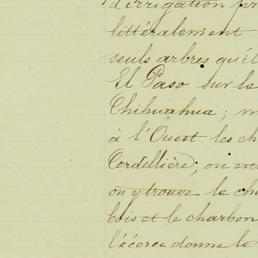 d'irrigation pr
littéralement
seuls arbres qu'il
El Paso sur le
Chihuahua; m
à l'Ouest les ch
Cordillière; on
on y trouve le ch
bois et le charbon
l'écorce donne le